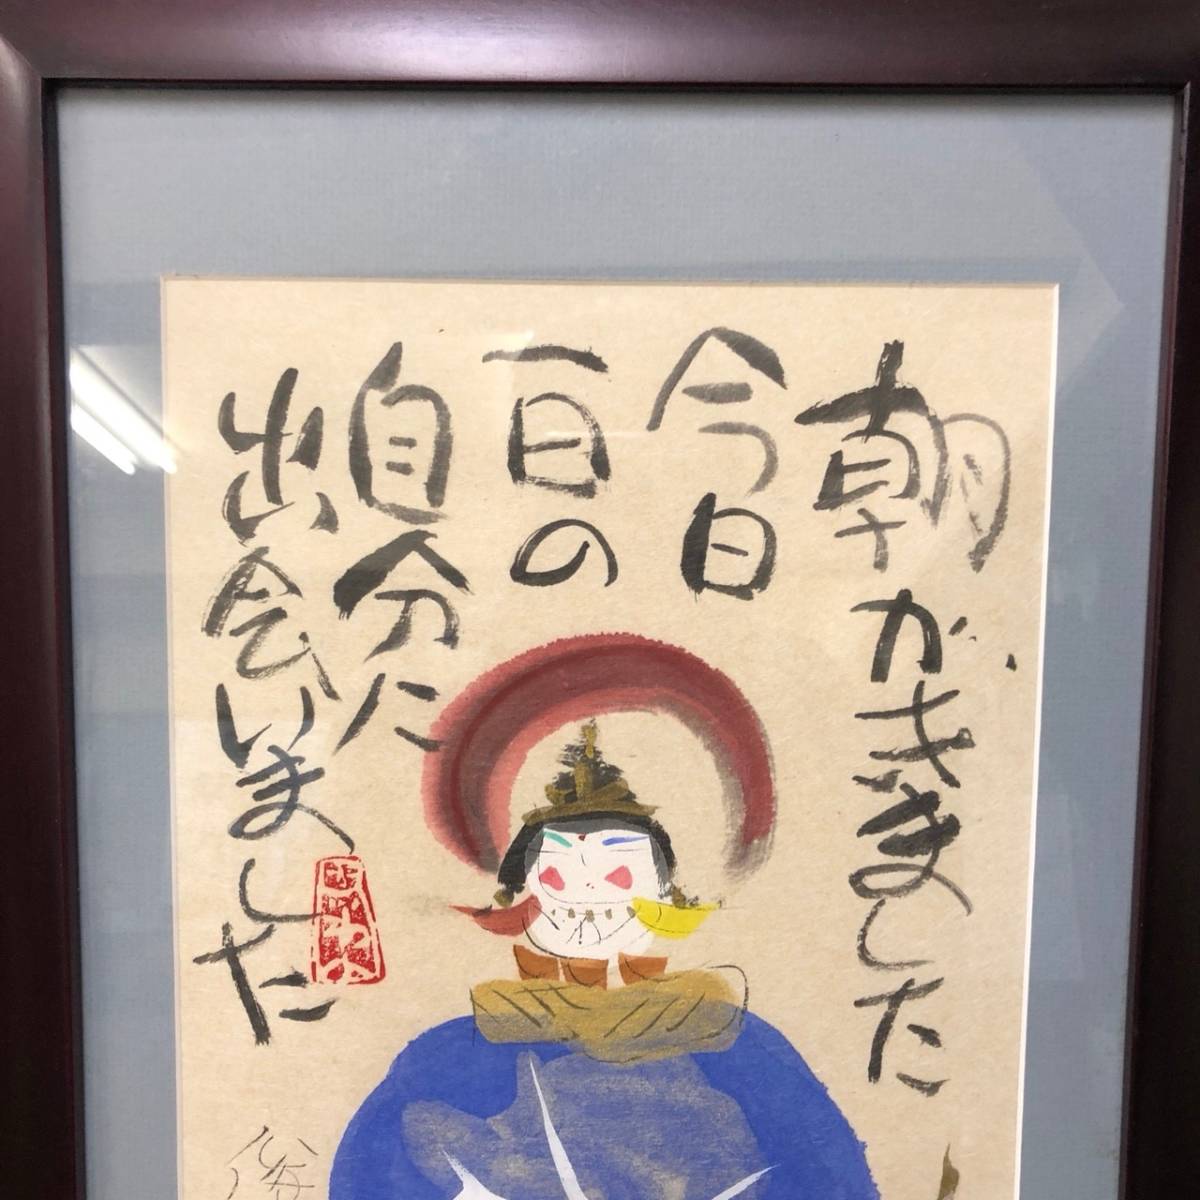 朝がきました
今日
一日の
自分に
出会いました